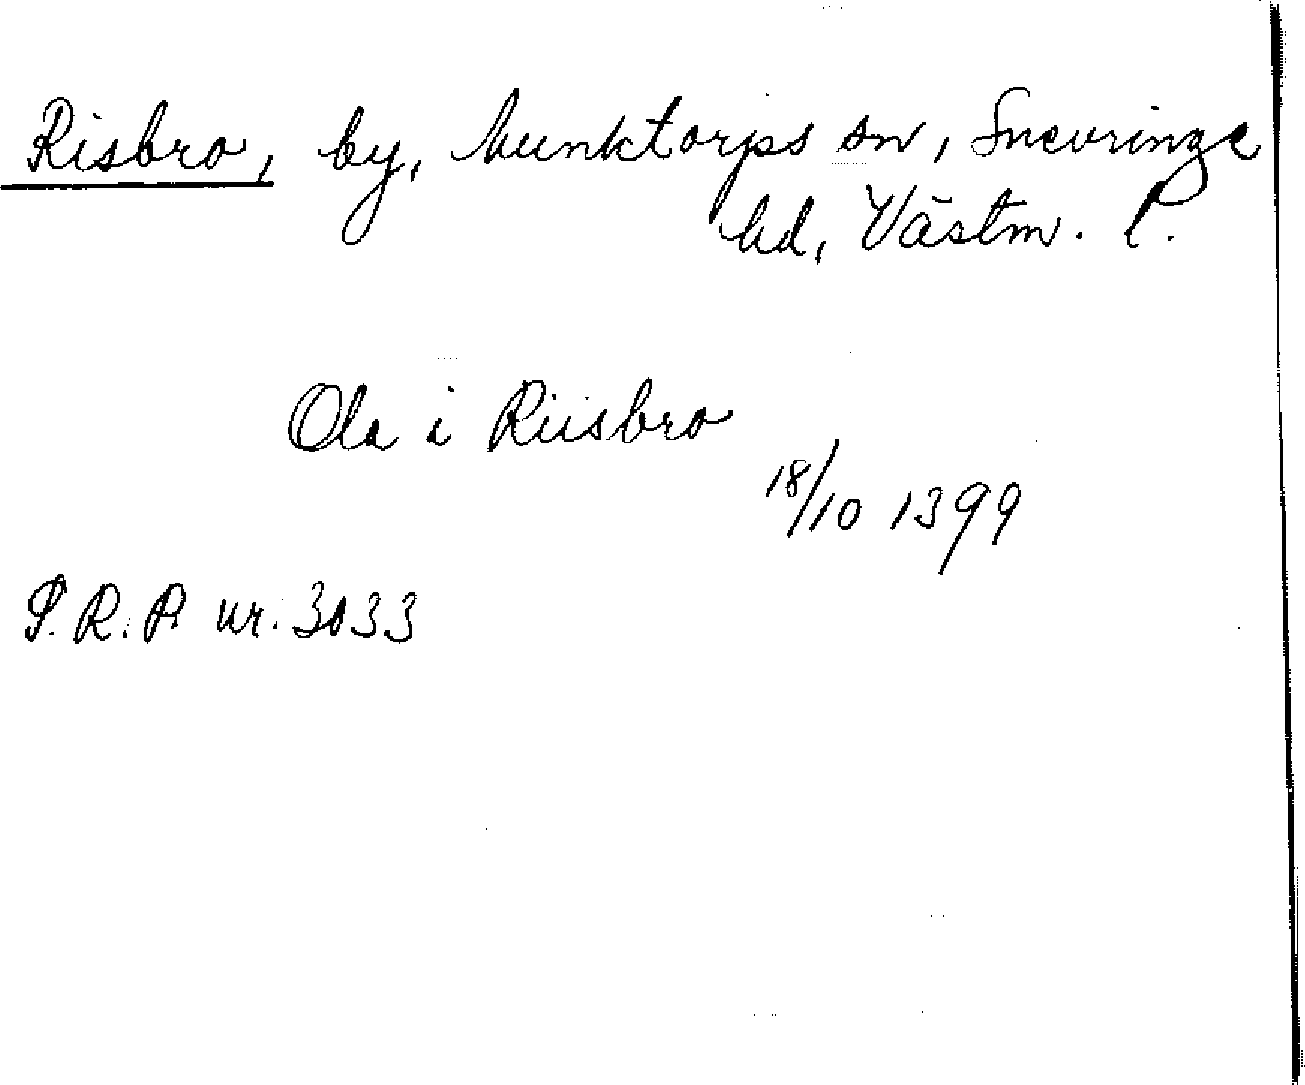 Risbro, by, Munktorps sn, Snevringe
hd, Västm. l.
Ola i Riisbro
18/10 1399
S.R.P. nr. 3033